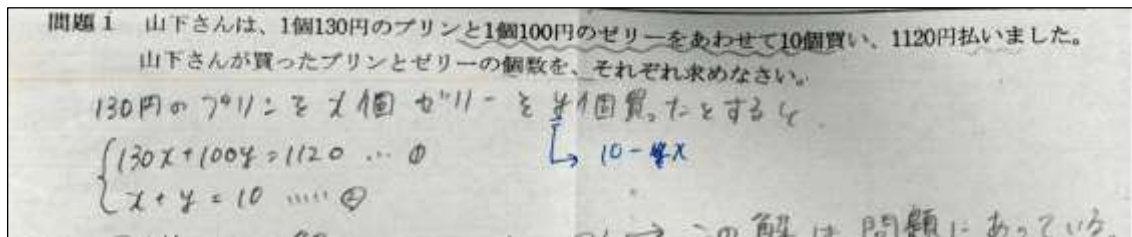 問題1 山下さんは、1個130円のプリンと1個100円のゼリーをあわせて10個買い、1120円払いました。
山下さんが買ったプリンとゼリーの個数を、それぞれ求めなさい。
130円のプリンをx個 ゼリーをy個買ったとすると
130x+100y=1120 … ①
→ 10-x
x+y=10 ……②
→ この解は問題にあっている。